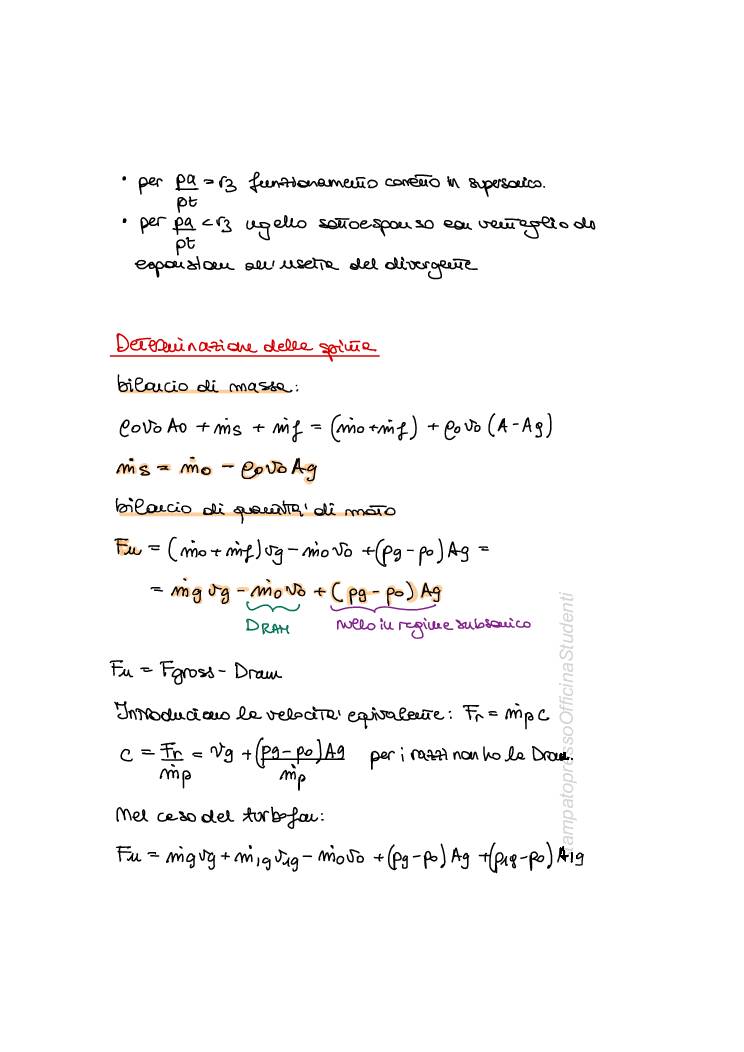 • per pa/pt = r3 funzionamento corretto in supersonico.
• per pa/pt < r3 ugello sottoespanso con ventaglio di
espansioni all'uscita del divergente
Determinazione della spinta
bilancio di massa:
ρ0v0A0 + ṁs + ṁf = (ṁ0+ṁf) + ρ0v0(A-A9)
ṁs = ṁ0 - ρ0v0A9
bilancio di quantita' di moto
Fu = (ṁ0+ṁf)v9 - ṁ0v0 + (p9-p0)A9 =
= ṁ9v9 - ṁ0v0 + (p9-p0)A9
DRAM nullo in regime subsonico
Fu = Fgross - Dram
Introduciamo la velocita' equivalente: Fr = ṁp c
c = Fr/ṁp = v9 + (p9-p0)A9/ṁp per i razzi non ho la Dram.
Nel caso del turbofan:
Fu = ṁ9v9 + ṁ19v19 - ṁ0v0 + (p9-p0)A9 + (p19-p0)A19
ampatopressoOfficinaStudenti